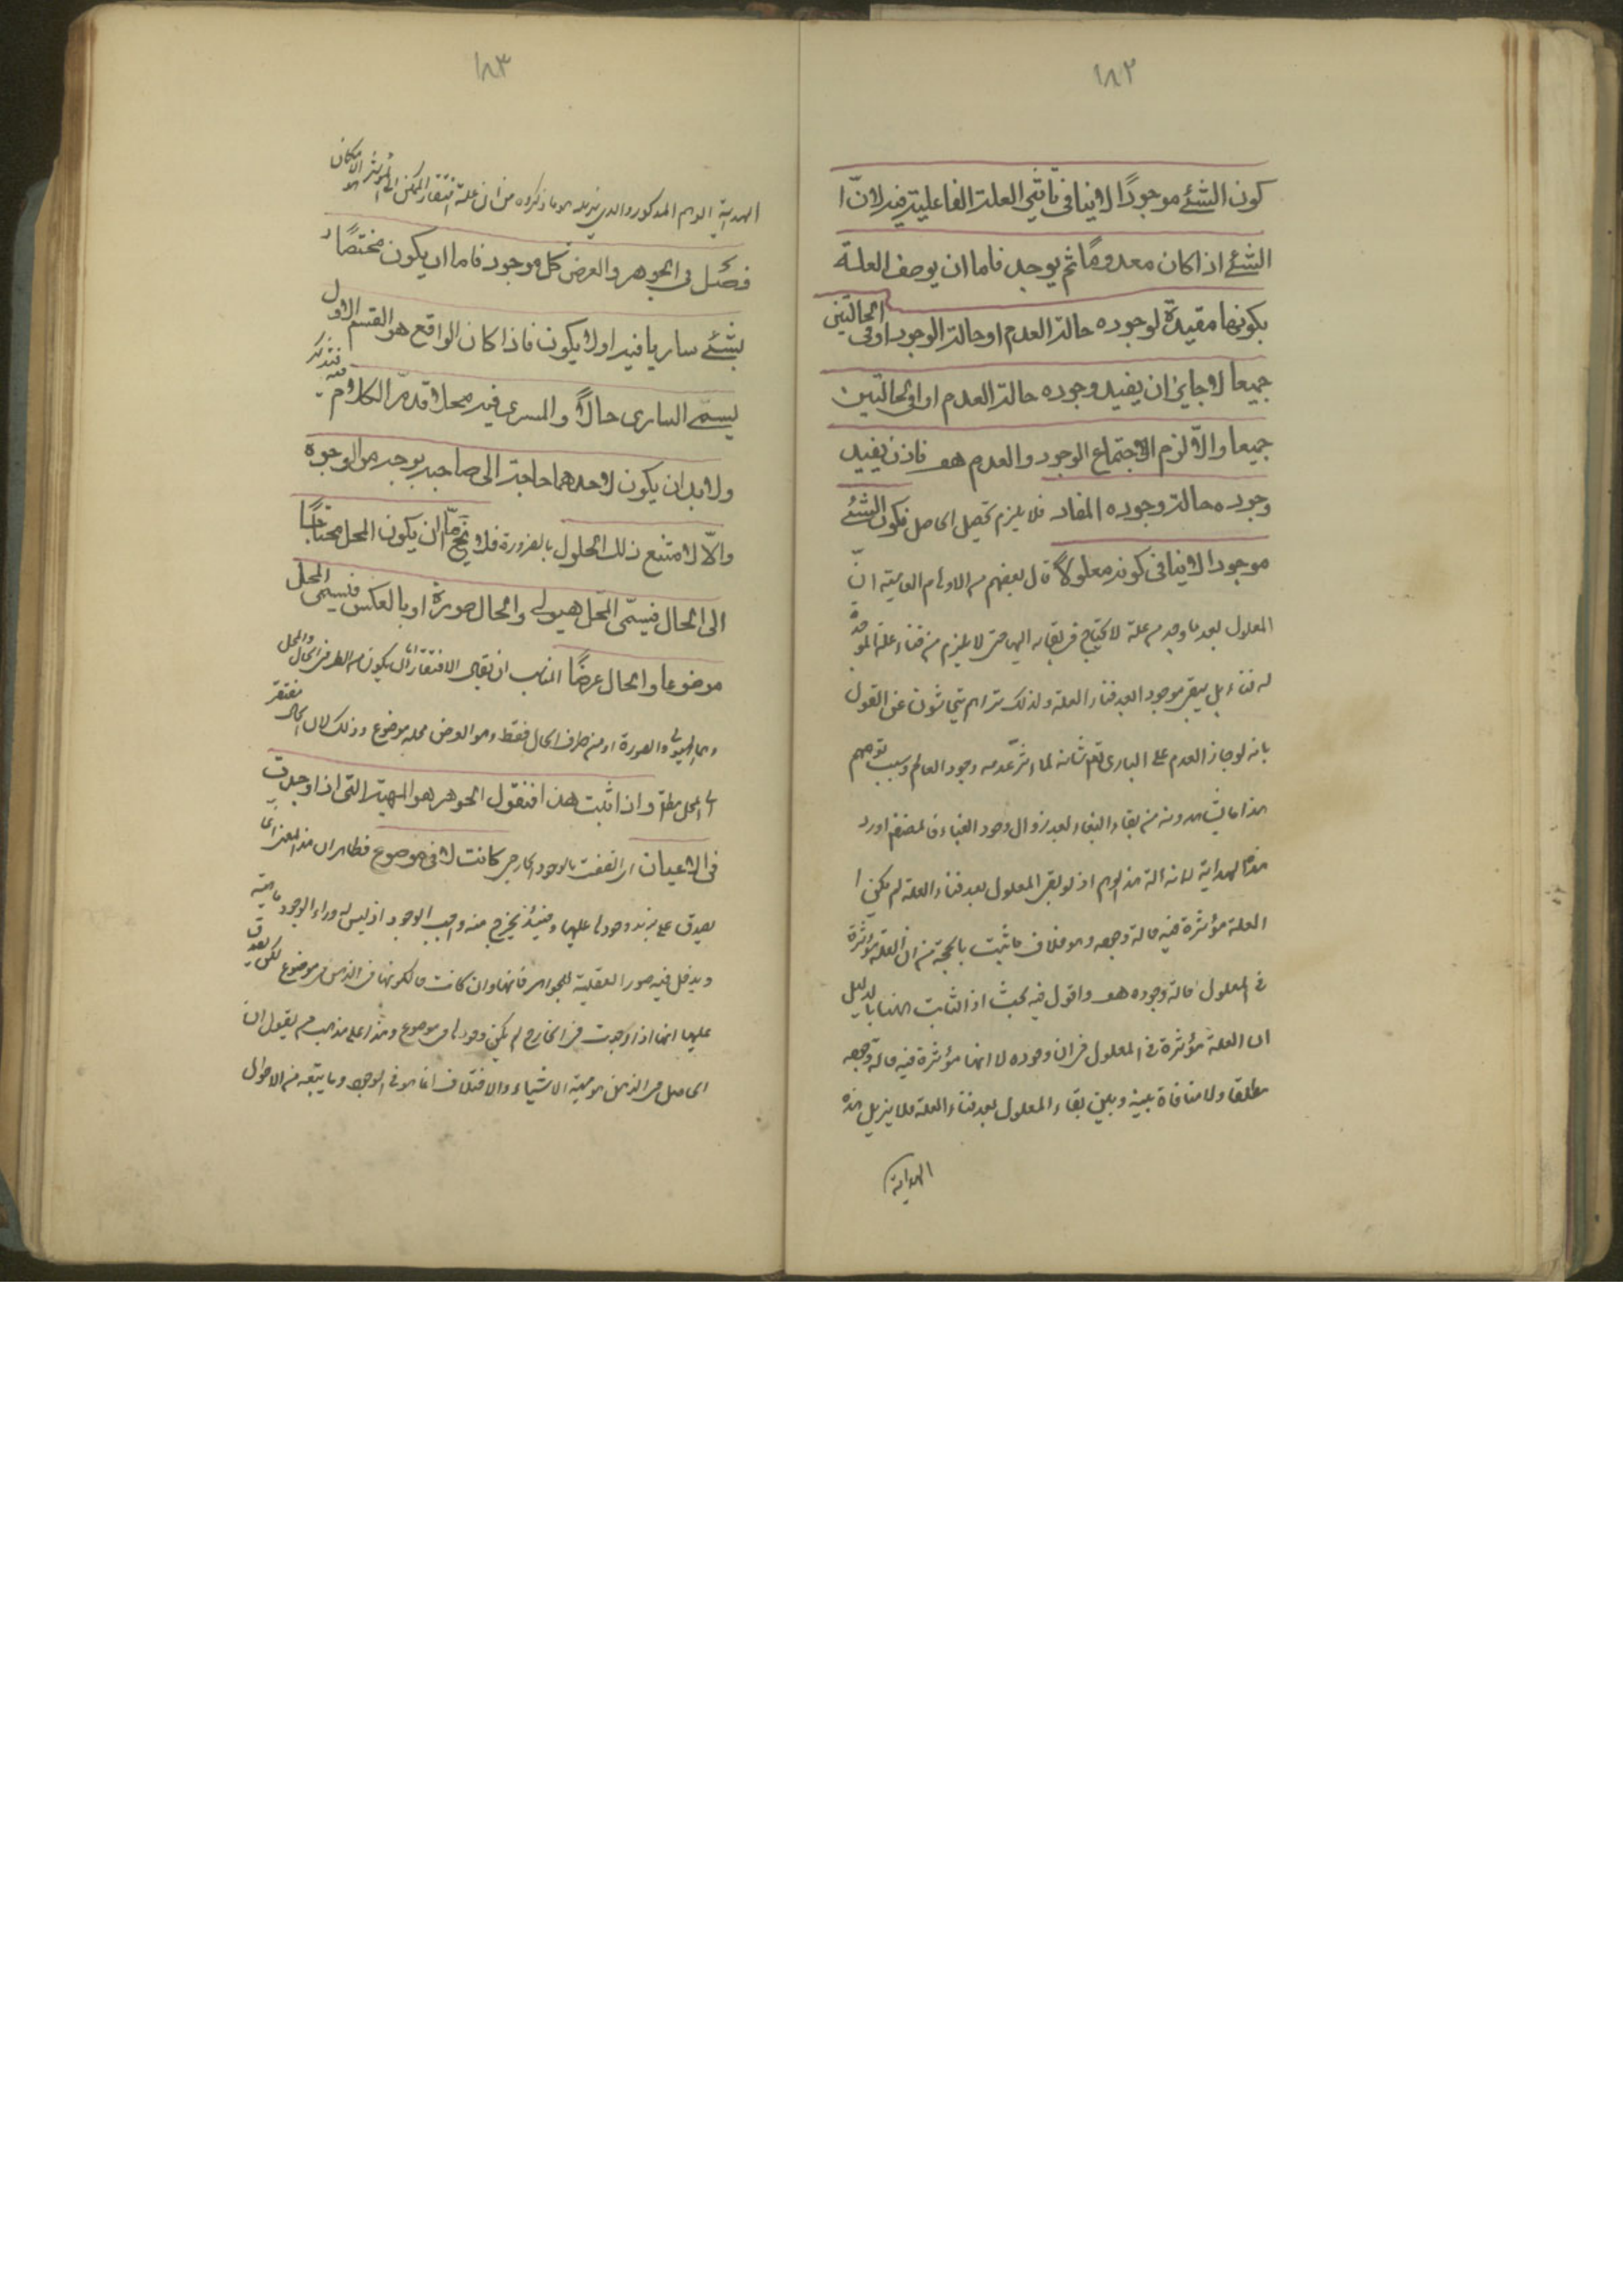 ١٨٢
كون الشئ موجودًا لا ينافى تأثير العلة الفاعلية فيه لانّ ا
الشئ اذا كان معدومًا ثم يوجد فاما ان يوصف العلة
بكونها مفيدة لوجوده حالة العدم او حالة الوجود او فى الحالتين
جميعا لا جايز ان يفيد وجوده حالة العدم او فى الحالتين
جميعا والّا لزم الاجتماع الوجود والعدم هف فاذن يفيد
وجوده حالة وجوده المفاد فلا يلزم تحصيل الحاصل فكون الشئ
موجودا لا ينافى كونه معلولًا قال بعضهم من الاوهام العامية انّ
المعلول بعد ما وجد من علة لا يحتاج فى بقائه اليها حتى لا يلزم من فناء علته الموجدة
له فناءه بل يبقى موجودا بعد فناء العلة ولذلك تراهم يتحاشون عن القول
بانه لو جاز العدم على البارى تعم شانه لما ضرّ عدمه وجود العالم وسبب توهمهم
هذا ما يشاهدونه من بقاء البناء بعد زوال وجود البناء فالمصنف اورد
هذا الهداية لازالة هذا الوهم اذ لو بقى المعلول بعد فناء العلة لم يكن ا
العلة مؤثرة فيه حالة وجوده وهو خلاف ما ثبت بالحجة من ان العلة مؤثرة
فى المعلول حالة وجوده هف واقول فيه بحث اذ الثابت ههنا بالدليل
ان العلة مؤثرة فى المعلول فى ان وجوده لا انها مؤثرة فيه حالة وجوده
مطلقا ولا منافاة بينه وبين بقاء المعلول بعد فناء العلة فلا يزيل هذه
الهداية
١٨٣
الهداية الوهم المذكور والذى يزيله هو ما ذكروه من ان علة افتقار الممكن الى المؤثر هو الامكان
فصل فى الجوهر والعرض كل موجود فاما ان يكون مختصًا
بشئ ساريا فيه او لا يكون فاذا كان الواقع هو القسم الاول
يسمّى السارى حالًّا والمسرى فيه محلا قد مرّ الكلام فيه فتذكر
ولا بد ان يكون لاحدهما حاجة الى صاحبه بوجه من الوجوه
والّا لامتنع ذلك الحلول بالضرورة فلا يخ امّا ان يكون المحل محتاجًا
الى الحال فيسمّى المحل هيولى والحال صورة او بالعكس فيسمى المحل
موضوعا والحال عرضًا المناسب ان يقال الافتقار اما ان يكون من الطرفين الحال والمحل
وهما الهيولى والصورة او من طرف الحال فقط وهو العرض محله موضوع وذلك لان الحال مفتقر
الى المحل مطلقا واذا ثبت هذا فنقول الجوهر هو المهية التى اذا وجدت
فى الاعيان اى اتصفت بالوجود الخارجى كانت لا فى موضوع فظاهر ان هذا المعنى انما
يصدق على ما يزيد وجودها عليها وحينئذ يخرج منه واجب الوجود اذ ليس له وراء الوجود ماهية
ويدخل فيه صور العقلية للجواهر فانها وان كانت حال كونها فى الذهن فى موضوع لكن يصدق
عليها انها اذا وجدت فى الخارج لم يكن وجودها فى موضوع وهذا على مذهب من يقول ان
الحاصل فى الذهن هو مهية الاشياء والاختلاف انما هو فى الوجود وما يتبعه من الاحوال